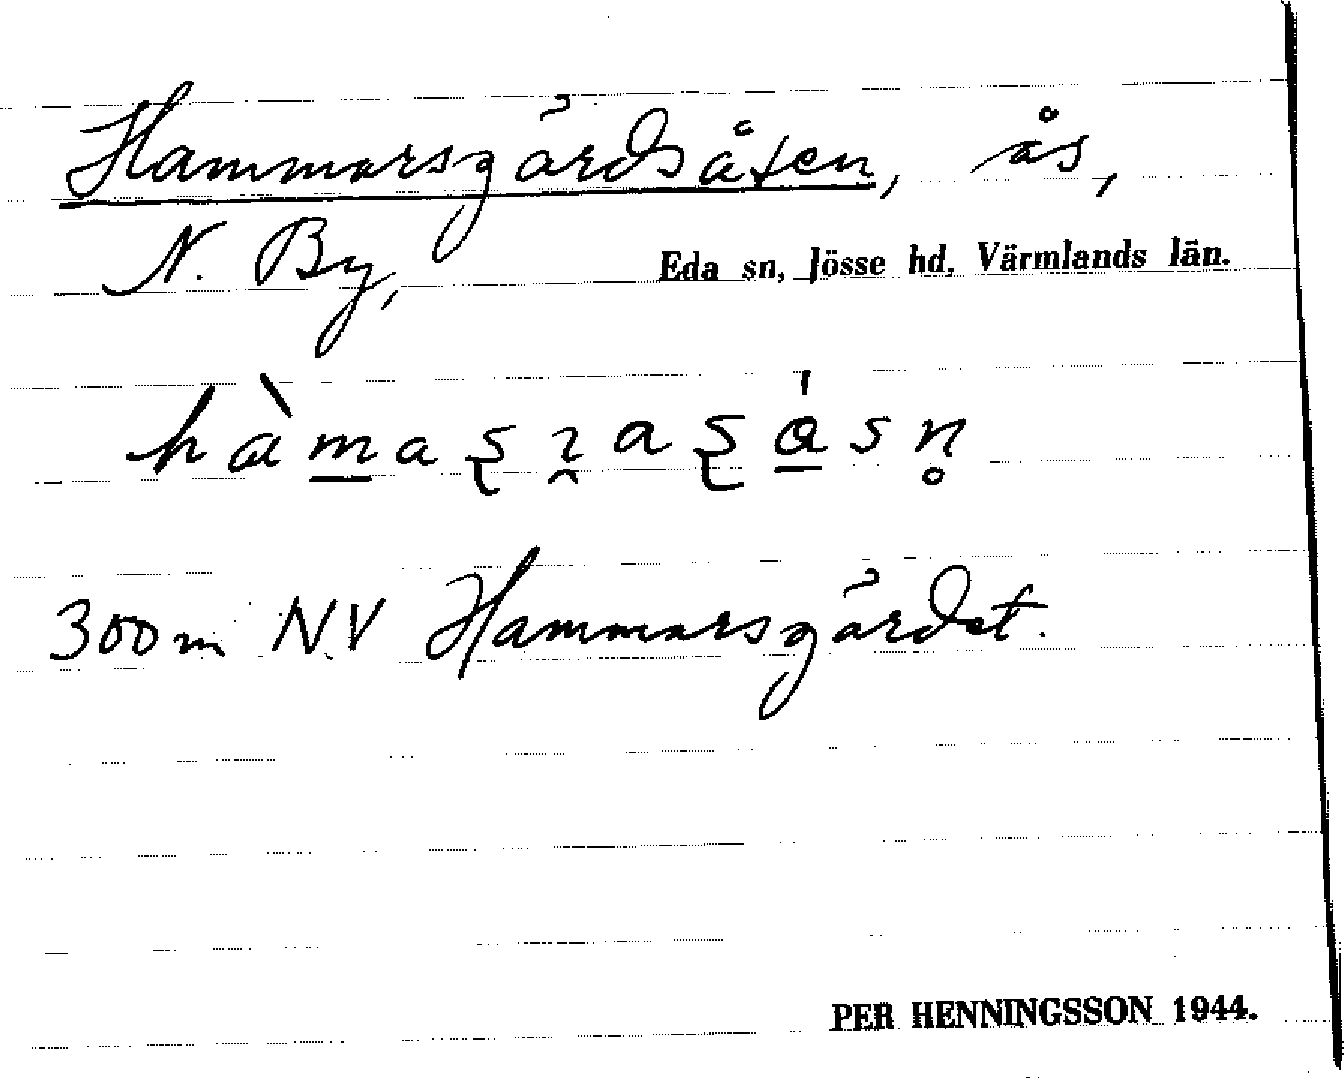 Hammarsgårdsåsen, ås,
N. By,
Eda sn, Jösse hd, Värmlands län.
300 m NV Hammarsgårdet.
PER HENNINGSSON 1944.